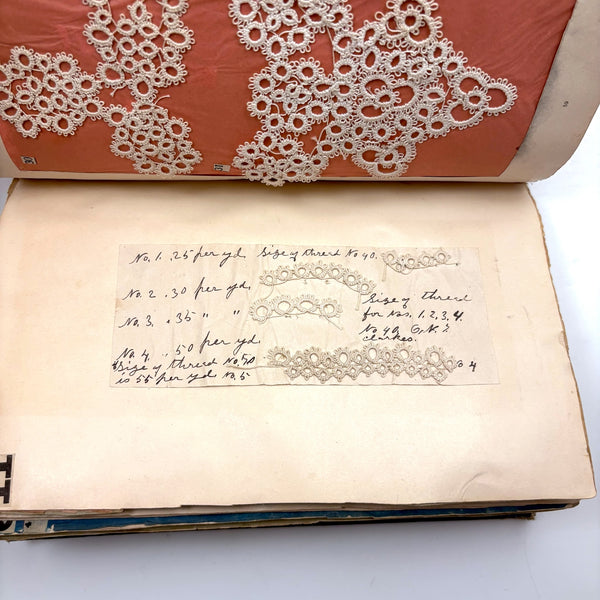 No. 1. .25 per yd. Size of thread No 40.
No. 2 .30 per yd.
No. 3. .35 " "
Size of thread
for Nos. 1, 2, 3, 4.
No 40, O.N.T.
Clarkes.
No. 4. .50 per yd.
Size of thread No. 50
is 55 per yd No. 5
No 4